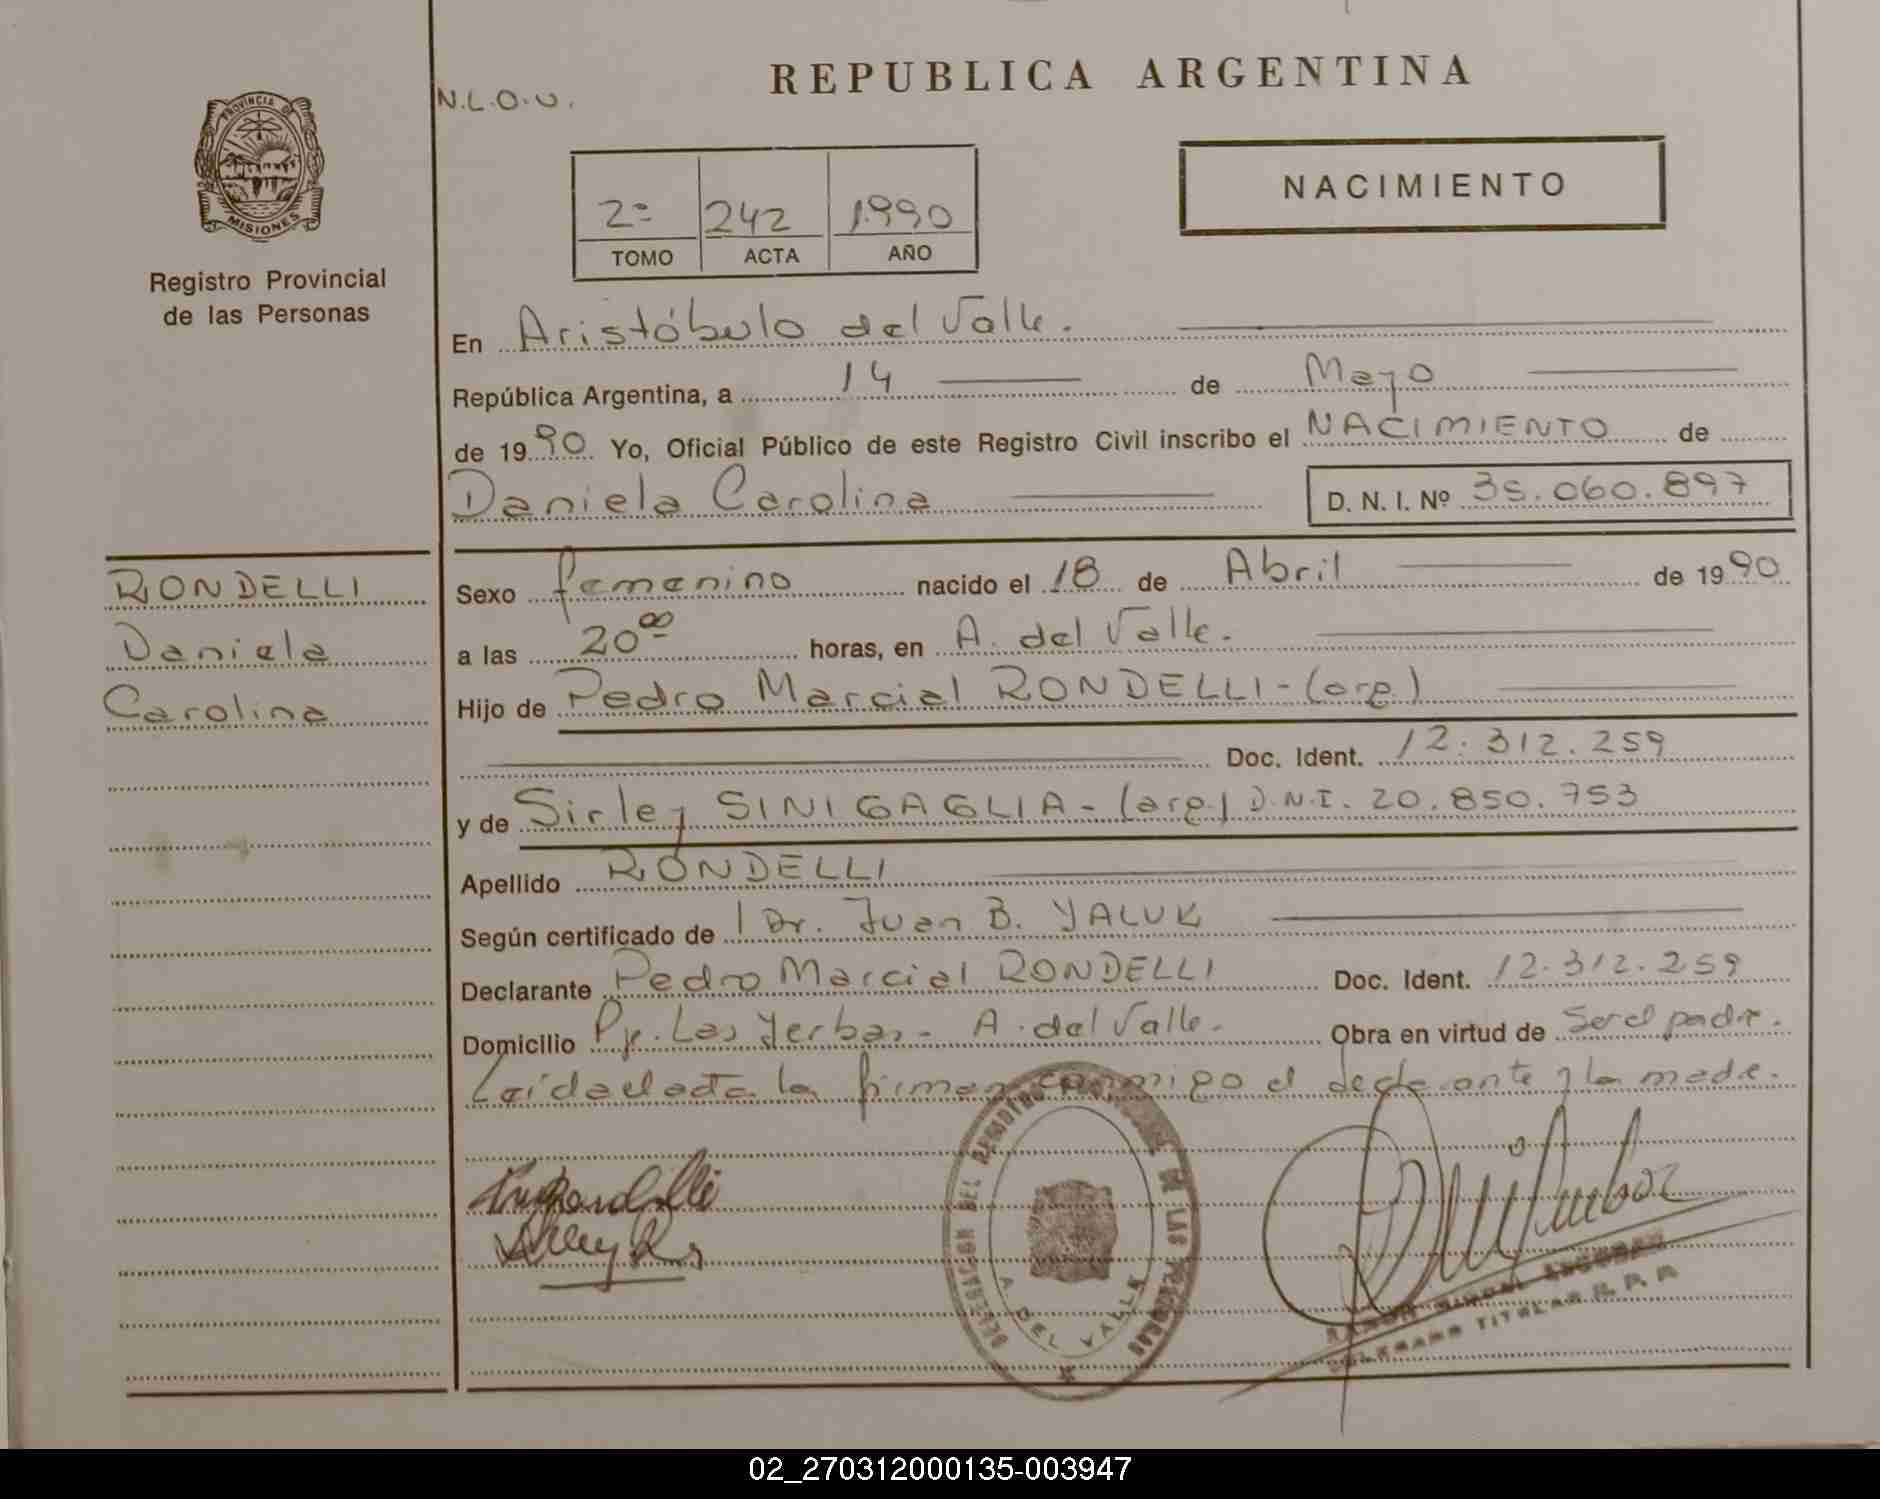 REPUBLICA ARGENTINA
N.L.O.U.
PROVINCIA DE MISIONES
Registro Provincial
de las Personas
2º 242 1990
TOMO ACTA AÑO
NACIMIENTO
En Aristóbulo del Valle.
República Argentina, a 14 de Mayo
de 1990 Yo, Oficial Público de este Registro Civil inscribo el NACIMIENTO de
Daniela Carolina D. N. I. Nº 35.060.897
RONDELLI
Daniela
Carolina
Sexo femenino nacido el 18 de Abril de 1990
a las 20 00 horas, en A. del Valle.
Hijo de Pedro Marcial RONDELLI-(arg.)
Doc. Ident. 12.312.259
y de Sirley SINIGAGLIA-(arg.) D.N.I. 20.850.753
Apellido RONDELLI
Según certificado de l Dr. Juan B. YALUK
Declarante Pedro Marcial RONDELLI Doc. Ident. 12.312.259
Domicilio Pje. Las Yerbas- A. del Valle. Obra en virtud de Ser el padre.
Leída el acta la firman conmigo el declarante y la madre.
DELEGACION DEL REGISTRO PROVINCIAL DE LAS PERSONAS
A. DEL VALLE
DELEGADO TITULAR R. P. P.
02_270312000135-003947